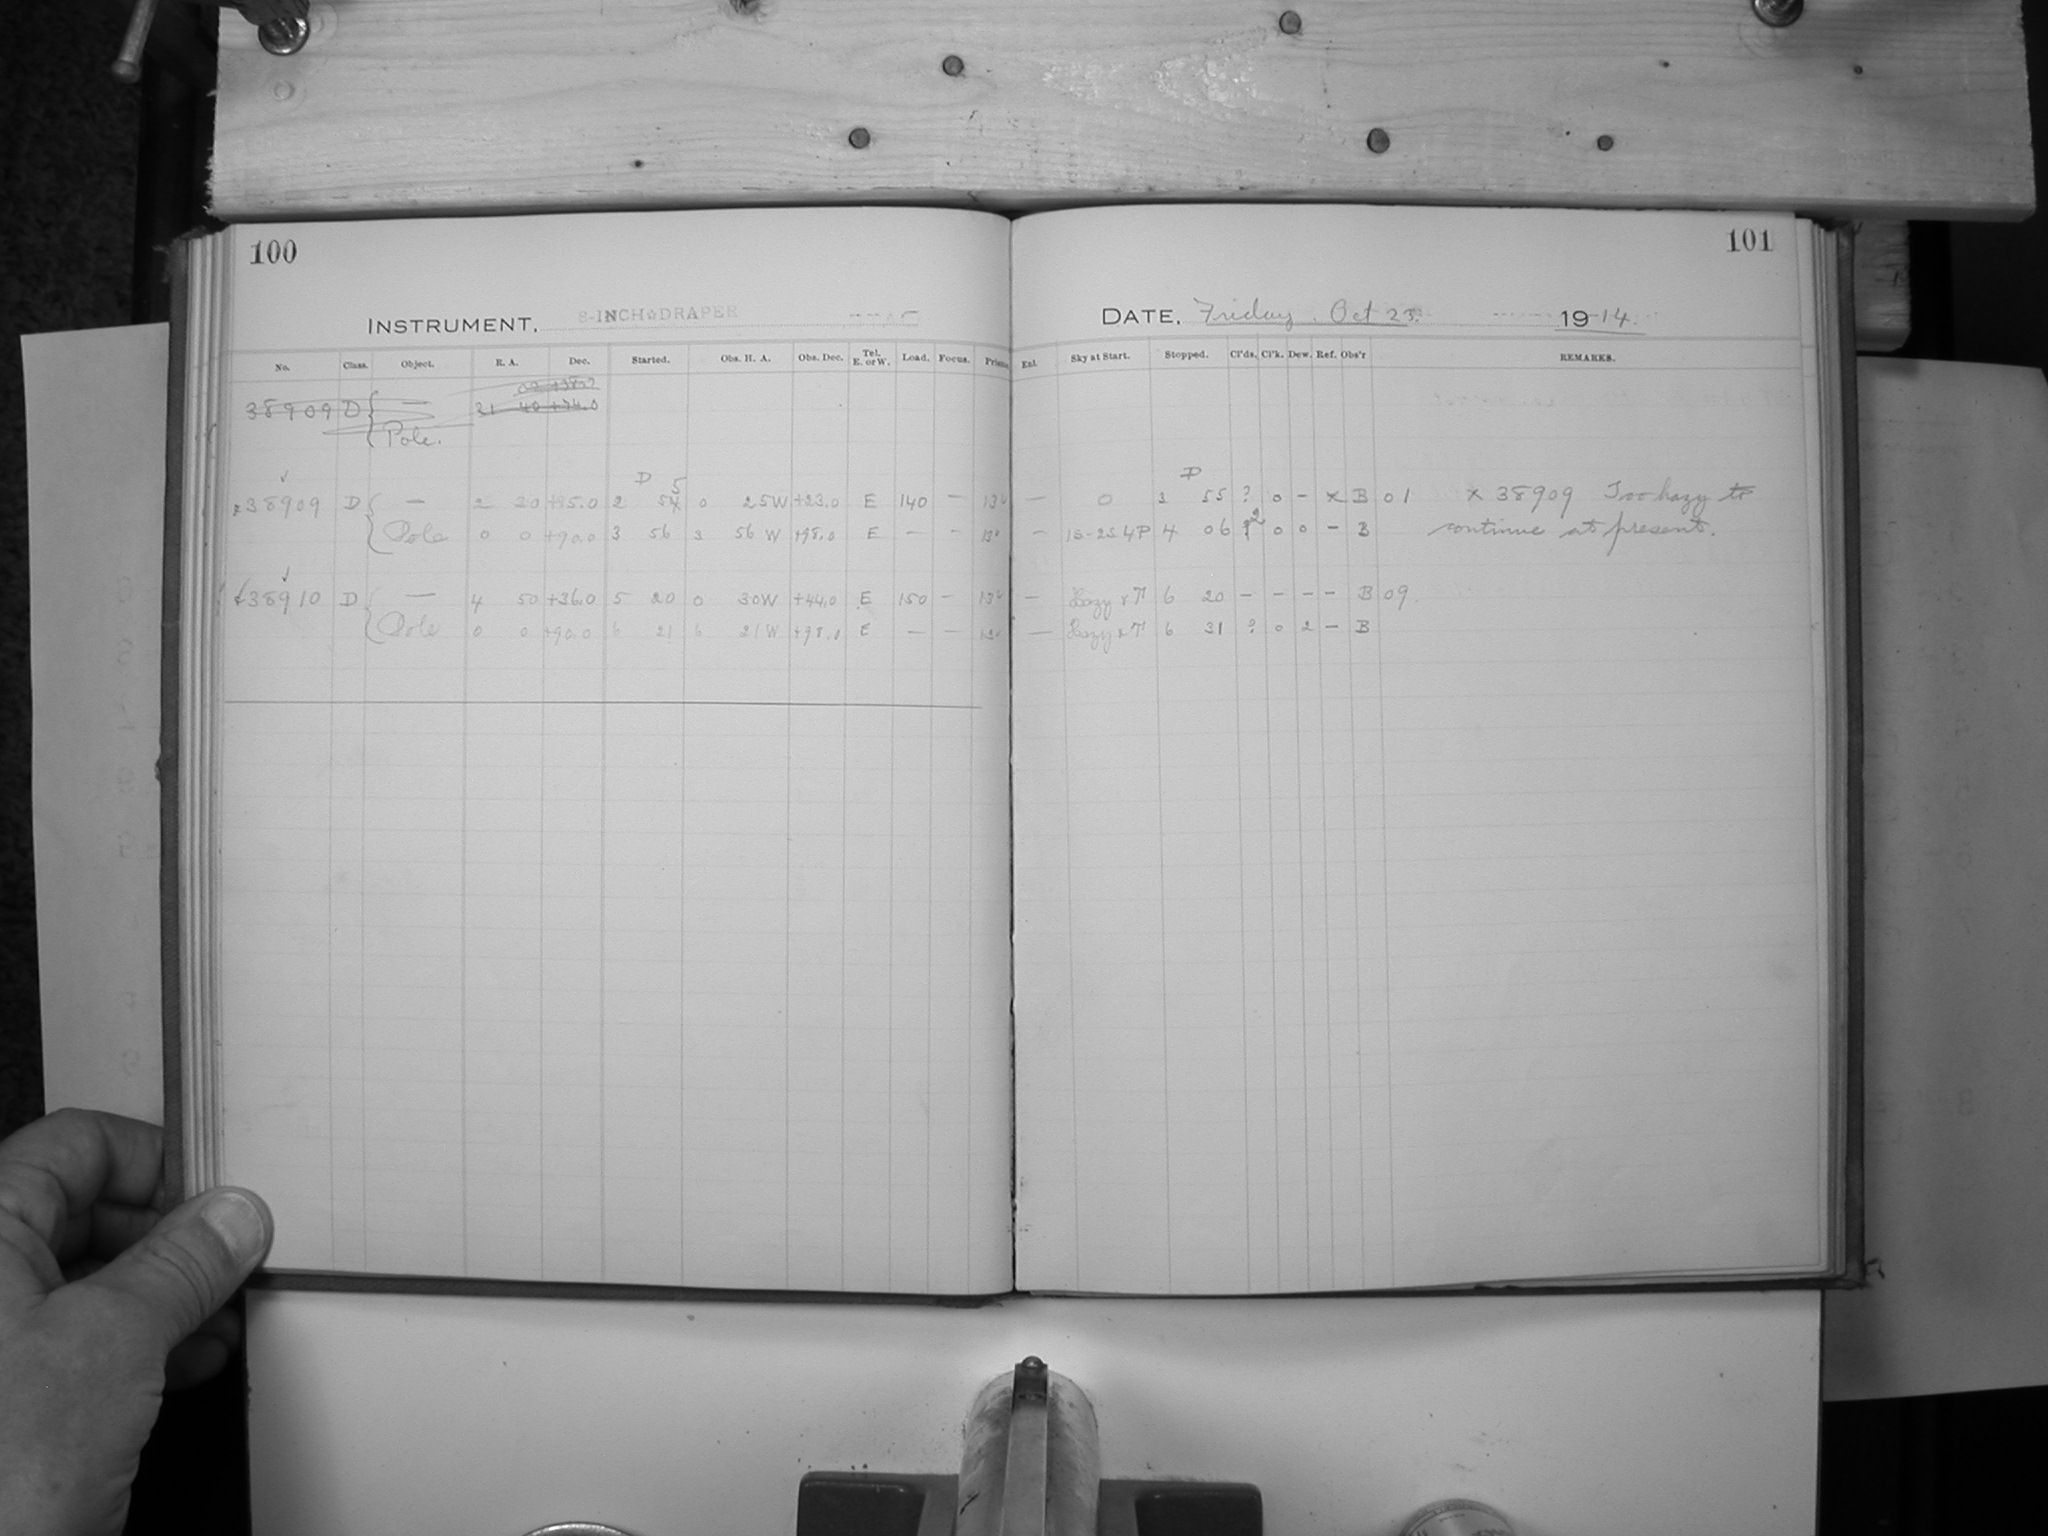 100
101
INSTRUMENT, 8-INCH DRAPER
DATE, Friday, Oct 23. 1914.
No. Class. Object. R. A. Dec. Started. Obs. H. A. Obs. Dec. Tel. E. or W. Load. Focus. Prism
Enl. Sky at Start. Stopped. Cl'ds. Cl'k. Dew. Ref. Obs'r REMARKS.
38909 D { —
Pole.
D 5
x38909 D { — 2 30 2 0 25W +23.0 E 140 — — 0 3 55 ? 0 - x B 01 x 38909 Too hazy to
Pole 0 0 +90.0 3 56 3 56 W +98.0 E — — — 4 06 2 0 0 - B continue at present.
38910 D { — 4 50 +36.0 5 20 0 30W +44.0 E 150 — — Hazy 6 20 - - - - B 09
Pole 0 0 +90.0 6 21 6 21W +98.0 E — — — Hazy 6 31 ? 0 2 - B